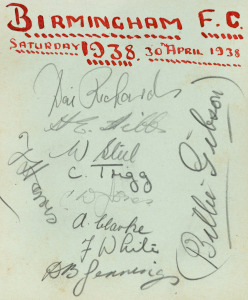 BIRMINGHAM F.C.
SATURDAY 1938. 30TH APRIL 1938
Dai Richards
H E Hibbs
W Steel
C. Trigg
D Jones
A. Clarke
F White
D B Jennings
Billie Gibson